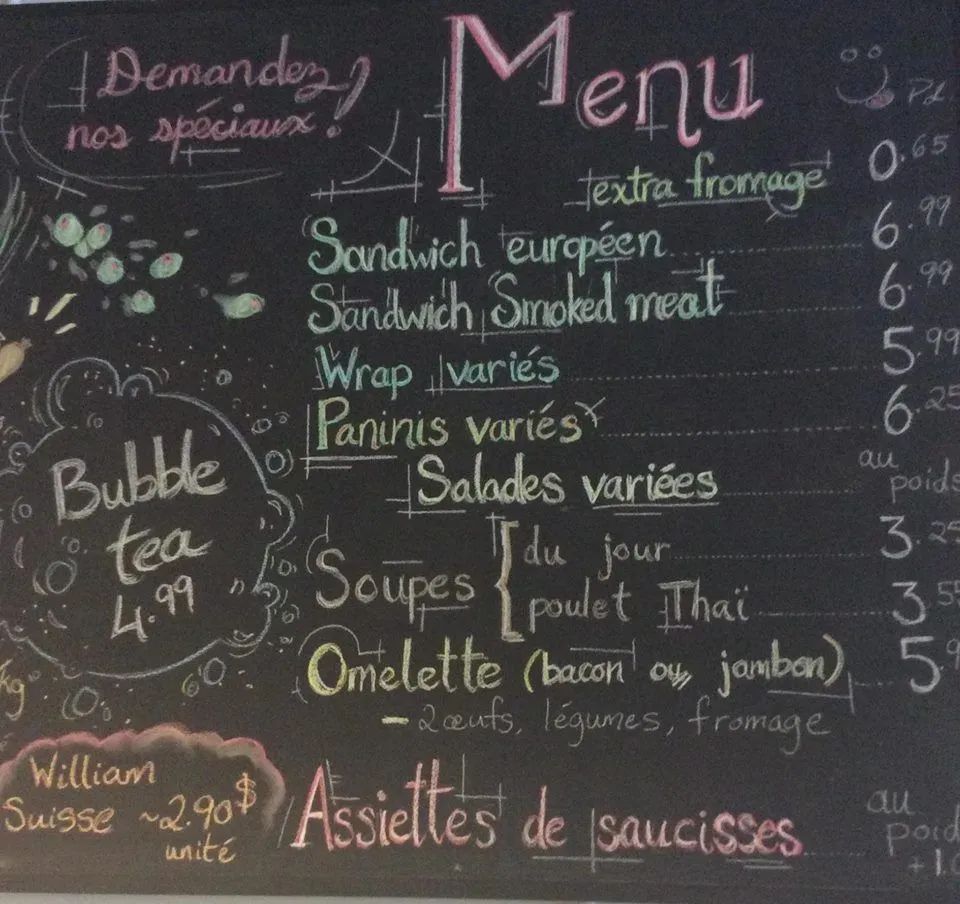 Demandez
nos spéciaux!
Menu
extra fromage 0.65
Sandwich européen 6.99
Sandwich Smoked meat 6.99
Wrap variés 5.99
Paninis variés 6.25
Salades variées au poids
Soupes { du jour 3.25
poulet Thaï 3.55
Omelette (bacon ou jambon) 5.9
- 2 œufs, légumes, fromage
Assiettes de saucisses au
Bubble
tea
4.99
kg
William
Suisse ~2.90$
unité